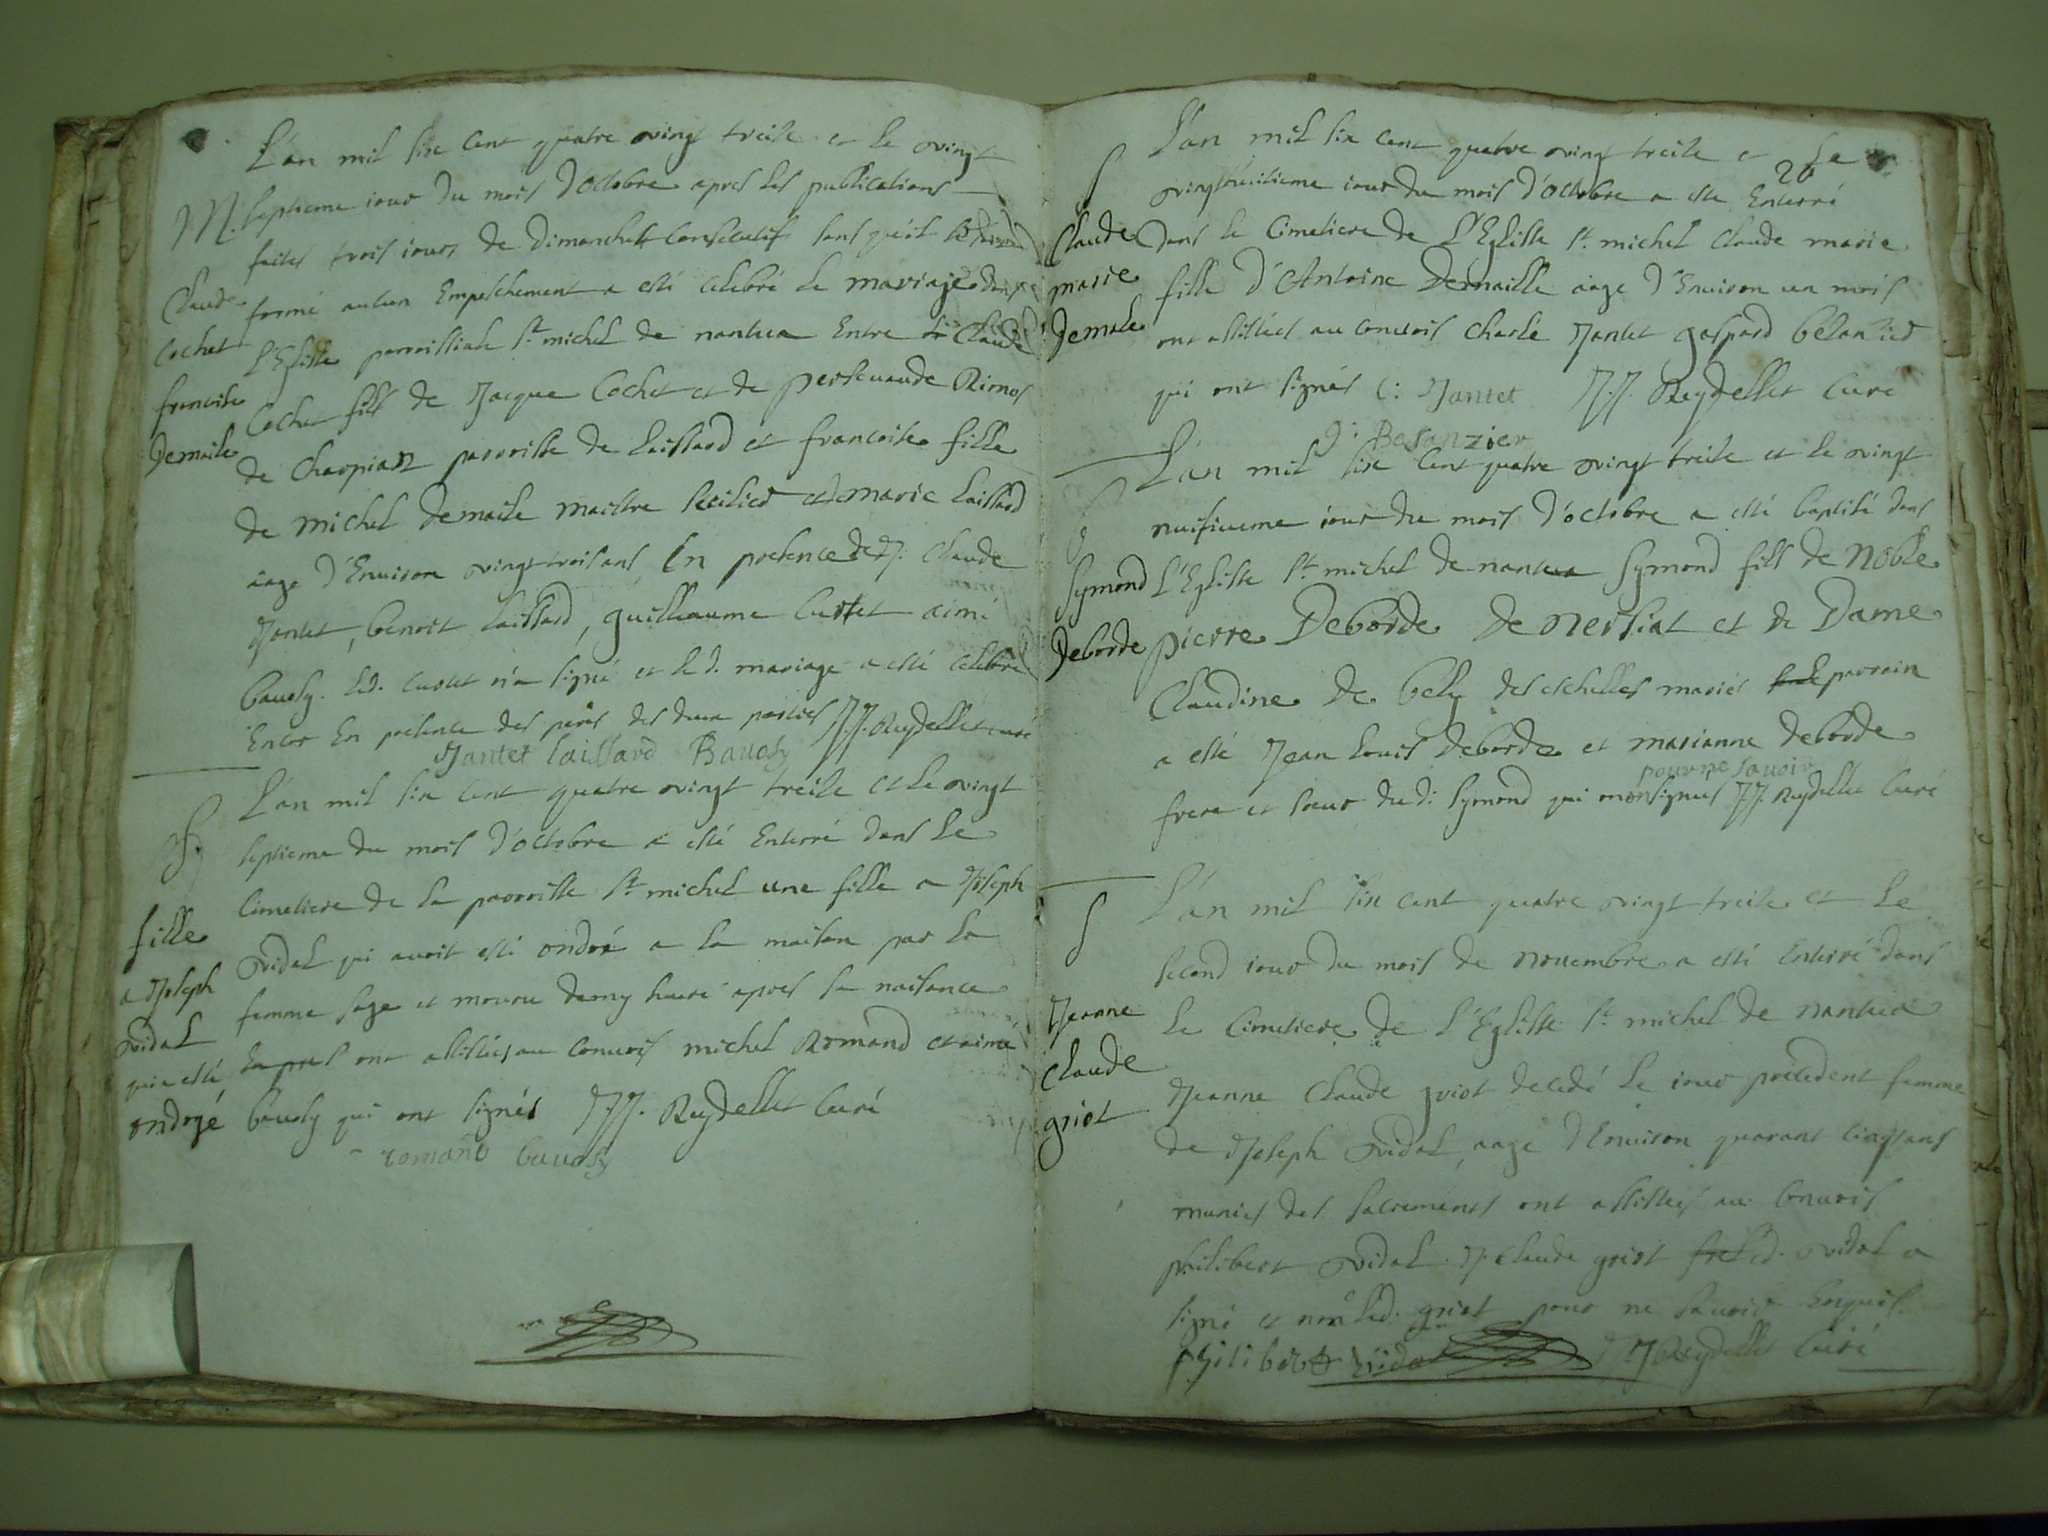 L'an mil six cent quatre vingt treise et le vingt
M. septieme jour du mois d'octobre apres les publications
faites trois jours de dimanches consecutif sans qu'il se
Claude formé aucun empeschement a esté celebré le mariage dans
cochet L'Eglisse parroissiale St michel de nantua entre Claude
francoise Cochet fils de Jacque Cochet et de
demaile de parroisse de Laissard et francoise fille
de michel demaile maistre et de marie Laissard
aage d'environ vingt trois ans En presence de Claude
Jantet, benoit Laissard, guilleaume Curtet aimé
bavosy. led. curtet n'a signé et led. mariage a esté celebré
encor en presence des peres des deux parties J.J. Reydellet curé
Jantet Laissard Bavosy
L'an mil six cent quatre vingt treise et le vingt
S. septieme du mois d'octobre a esté enterré dans le
cimetiere de la parroisse St michel une fille a Joseph
fille vidal qui avoit esté ondoié a la maison par la
a Joseph femme sage et mouru demy heure apres sa naisance
vidal ont assistés au convois michel Romand et aimé
qui a esté
ondoyé bavosy qui ont signés J.J. Reydellet Curé
romand bavosy
26
L'an mil six cent quatre vingt treise et le
S vingthuitieme jour du mois d'octobre a este Enterré
Claude dans le Cimetiere de L'Eglisse St. michel Claude marie
marie fille d'Antoine Demaille aage d'Environ un mois
demale ont assistées au convois Charle Jantet gaspard
qui ont signés C: Jantet J.J. Reydellet Curé
g: Besanzier
L'an mil six cent quatre vingt treise et le vingt
neufvieme jour du mois d'octobre a esté baptisé dans
Symond L'Eglisse St. michel de nantua Symond fils de Noble
deborde pierre Deborde de nersiat et de Dame
Claudine de bely des eschelles mariés parrain
a esté Jean Louis deborde et marianne deborde
pour ne savoir
frere et soeur du d: Symond qui J.J. Reydellet Curé
L'an mil six cent quatre vingt treise et Le
S second jour du mois de novembre a esté Enterré dans
Le Cimetiere de L'Eglisse St. michel de nantua
Jeanne
Claude Jeanne Claude griot decedé le jour precedent femme
griot de Joseph vidal, aage d'Environ quarant cinq ans
munies des sacrements ont assistees au Convois
philibert vidal J. Claude griot led. vidal a
signé et non led. griot pour ne savoir Enquis.
philibert vidal J.J. Reydellet Curé